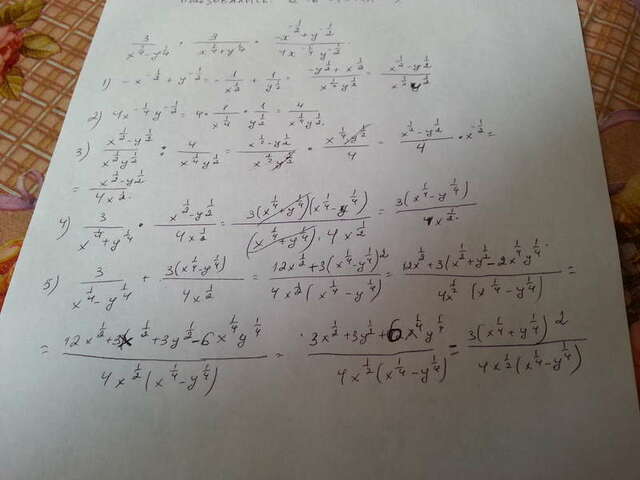 3/(x^(1/4) - y^(1/4)) · 3/(x^(1/4) + y^(1/4)) · (-x^(-1/2) + y^(-1/2))/(4x^(-1/4) y^(-1/2))
1) -x^(-1/2) + y^(-1/2) = -1/x^(1/2) + 1/y^(1/2) = (-y^(1/2) + x^(1/2))/(x^(1/2) y^(1/2)) = (x^(1/2) - y^(1/2))/(x^(1/2) y^(1/2))
2) 4x^(-1/4) y^(-1/2) = 4 · 1/x^(1/4) · 1/y^(1/2) = 4/(x^(1/4) y^(1/2))
3) (x^(1/2) - y^(1/2))/(x^(1/2) y^(1/2)) : 4/(x^(1/4) y^(1/2)) = (x^(1/2) - y^(1/2))/(x^(1/2) y^(1/2)) · (x^(1/4) y^(1/2))/4 = (x^(1/2) - y^(1/2))/4 · x^(-1/2) =
= (x^(1/2) - y^(1/2))/(4x^(1/2))
4) 3/(x^(1/4) + y^(1/4)) · (x^(1/2) - y^(1/2))/(4x^(1/2)) = (3(x^(1/4) + y^(1/4))(x^(1/4) - y^(1/4)))/((x^(1/4) + y^(1/4)) · 4x^(1/2)) = (3(x^(1/4) - y^(1/4)))/(4x^(1/2))
5) 3/(x^(1/4) - y^(1/4)) + (3(x^(1/4) - y^(1/4)))/(4x^(1/2)) = (12x^(1/2) + 3(x^(1/4) - y^(1/4))^2)/(4x^(1/2)(x^(1/4) - y^(1/4))) = (12x^(1/2) + 3(x^(1/2) + y^(1/2) - 2x^(1/4) y^(1/4))/(4x^(1/2)(x^(1/4) - y^(1/4))) =
= (12x^(1/2) + 3x^(1/2) + 3y^(1/2) - 6x^(1/4) y^(1/4))/(4x^(1/2)(x^(1/4) - y^(1/4))) = (3x^(1/2) + 3y^(1/2) + 6x^(1/4) y^(1/4))/(4x^(1/2)(x^(1/4) - y^(1/4))) = (3(x^(1/4) + y^(1/4))^2)/(4x^(1/2)(x^(1/4) - y^(1/4)))